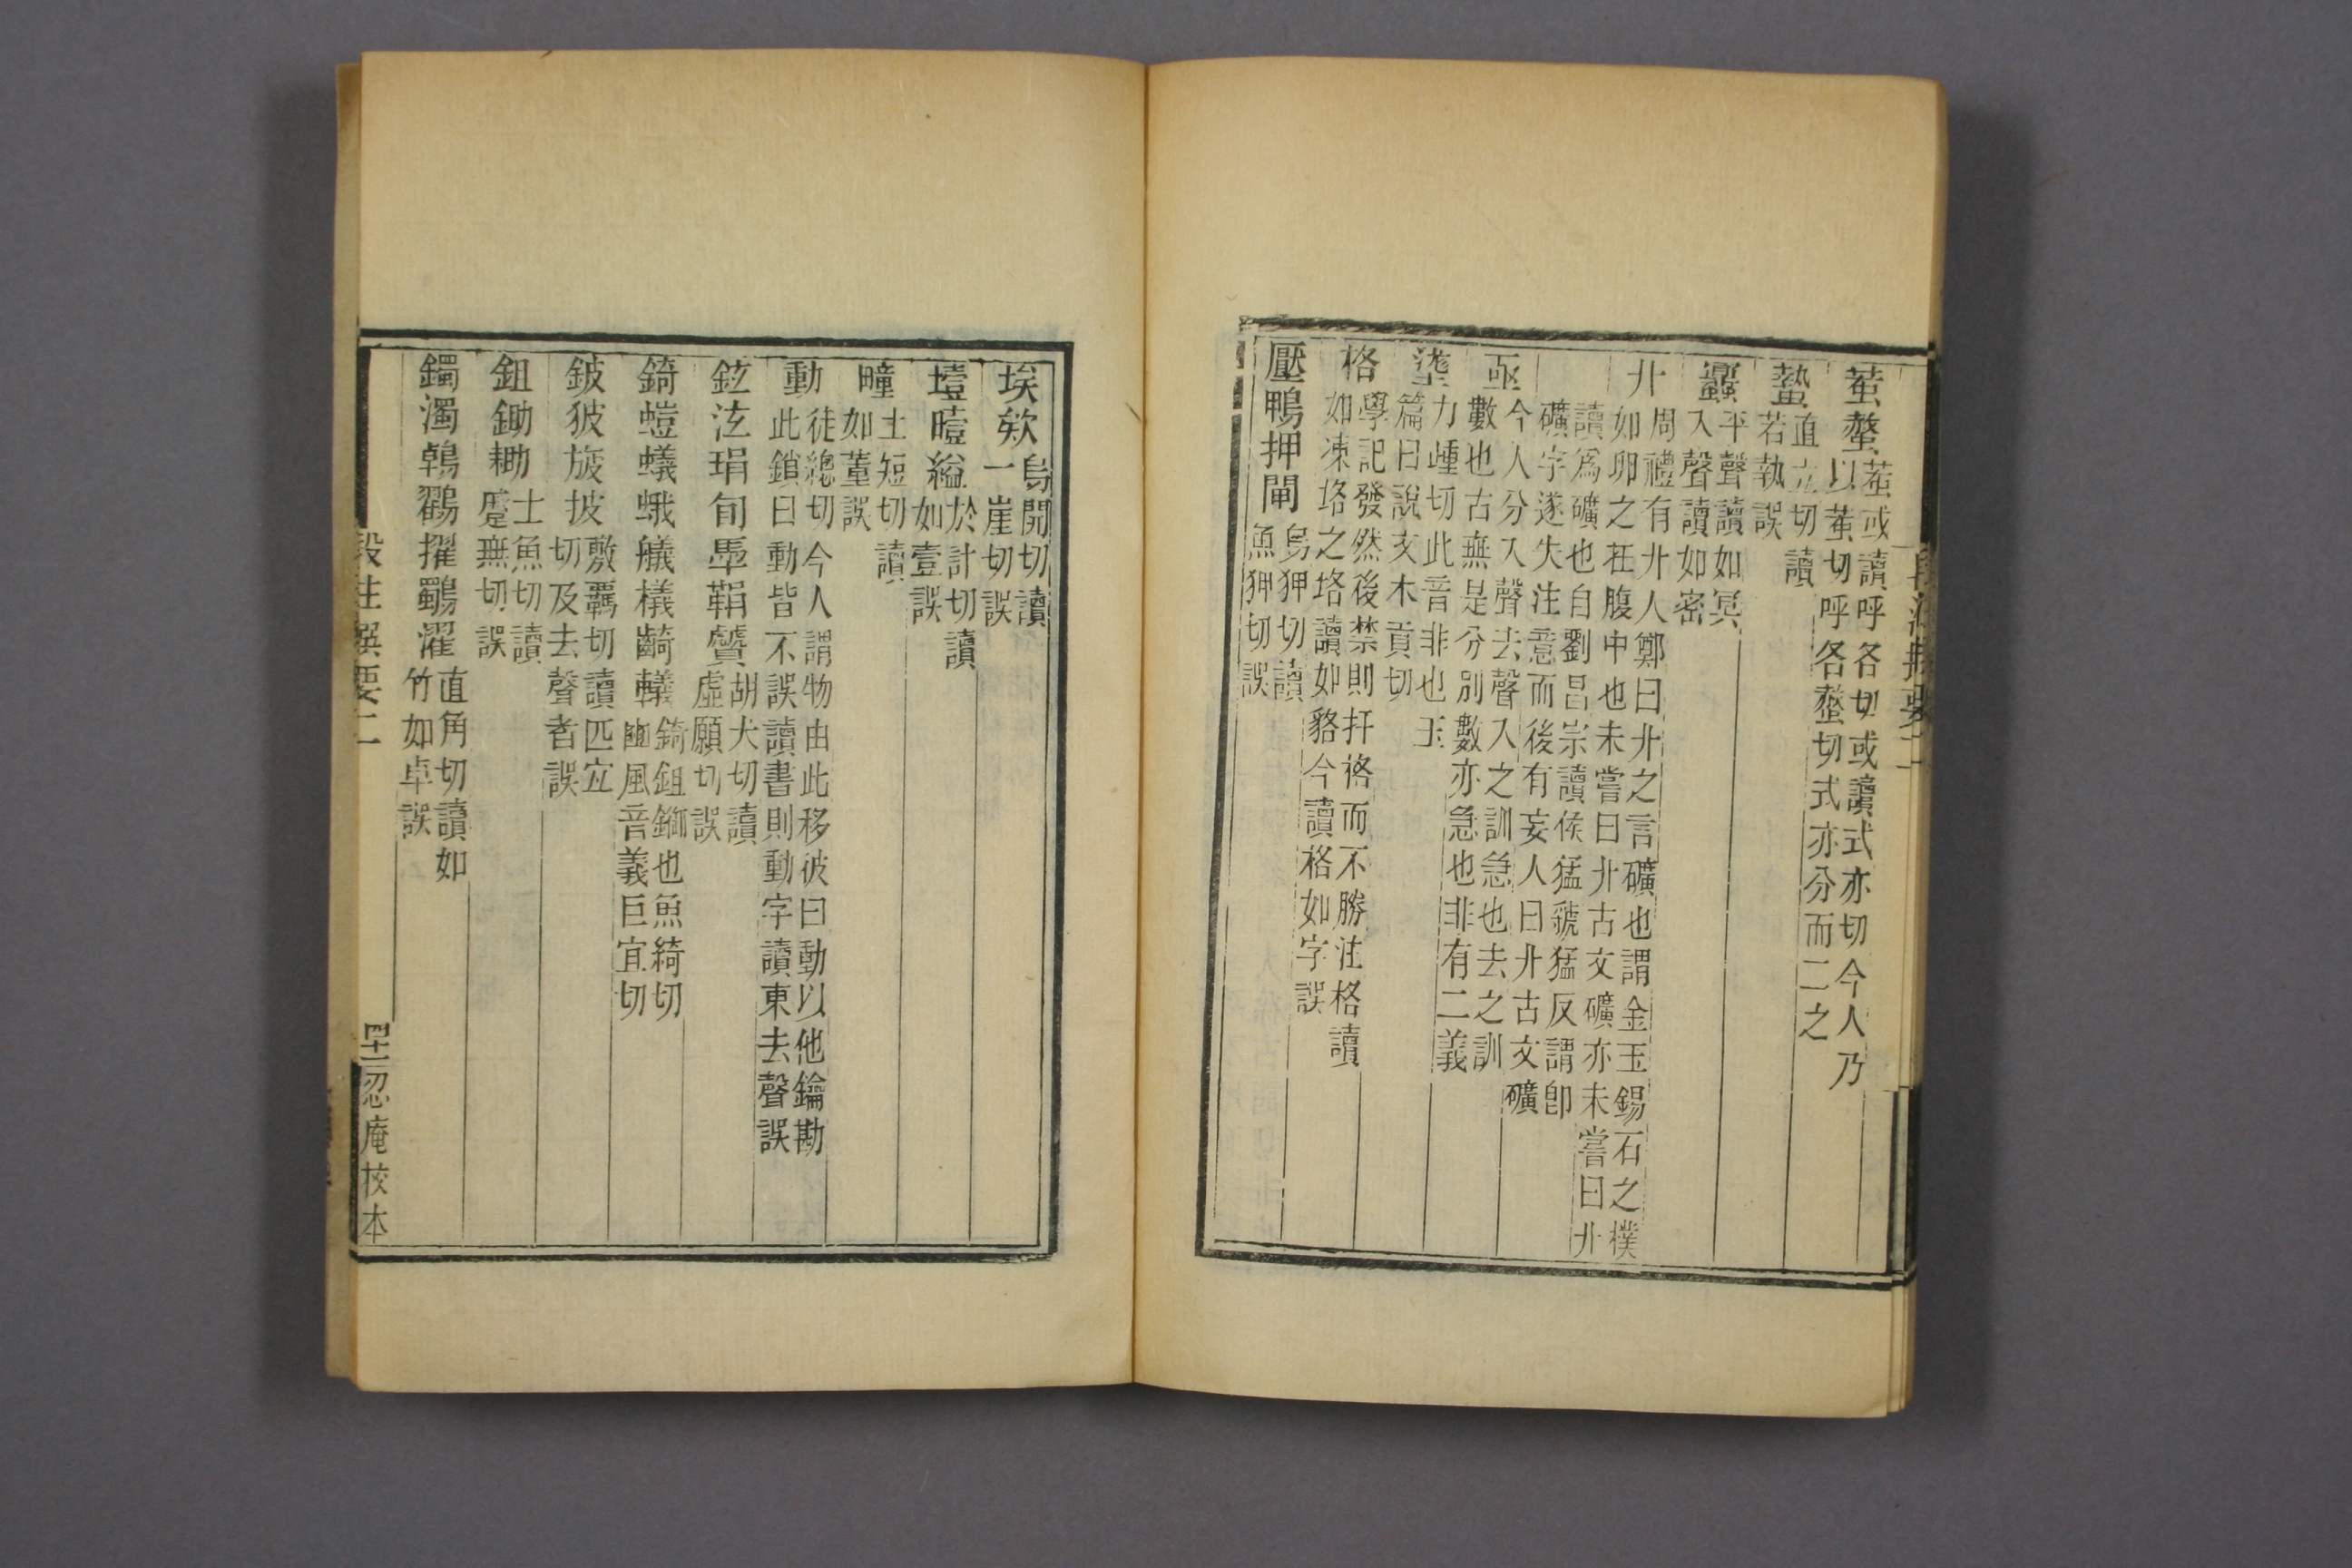 段注撰要二
蠚螫蠚或讀呼各切或讀式亦切今人乃
以蠚切呼各螫切式亦分而二之
蟄直立切讀
若執誤
平聲讀如冥
入聲讀如密
卝周禮有卝人鄭曰卝之言礦也謂金玉錫石之樸
如卵之在腹中也未嘗曰卝古文礦亦未嘗曰卝
讀爲礦也自劉昌宗讀侯猛虢猛反謂卽
礦字遂失注意而後有妄人曰卝古文礦
亟今人分入聲去聲入之訓急也去之訓
數也古無是分別數亦急也非有二義
湩力蹱切此音非也玉
篇曰說文木貢切
格學記發然後禁則扞格而不勝注格讀
如凍垎之垎讀如貉今讀格如字誤
壓鴨押閘烏狎切讀
魚狎切誤
埃欸烏開切讀
一崖切誤
壇曀縊於計切讀
如壹誤
疃土短切讀
如董誤
動徒總切今人謂物由此移彼曰動以他鑰勘
此鎖曰動皆不誤讀書則動字讀東去聲誤
鉉泫琄旬䍗鞙贙胡犬切讀
虛願切誤
錡螘蟻蛾艤檥齮轙錡鉏鋤也魚綺切
豳風音義巨宜切
鈹狓旇披敷羈切讀匹宜
切及去聲者誤
鉏鋤耡士魚切讀
麆無切誤
鐲濁鵫鸐擢鸀濯直角切讀如
竹如卓誤
段注撰要二
四十一
忍庵校本